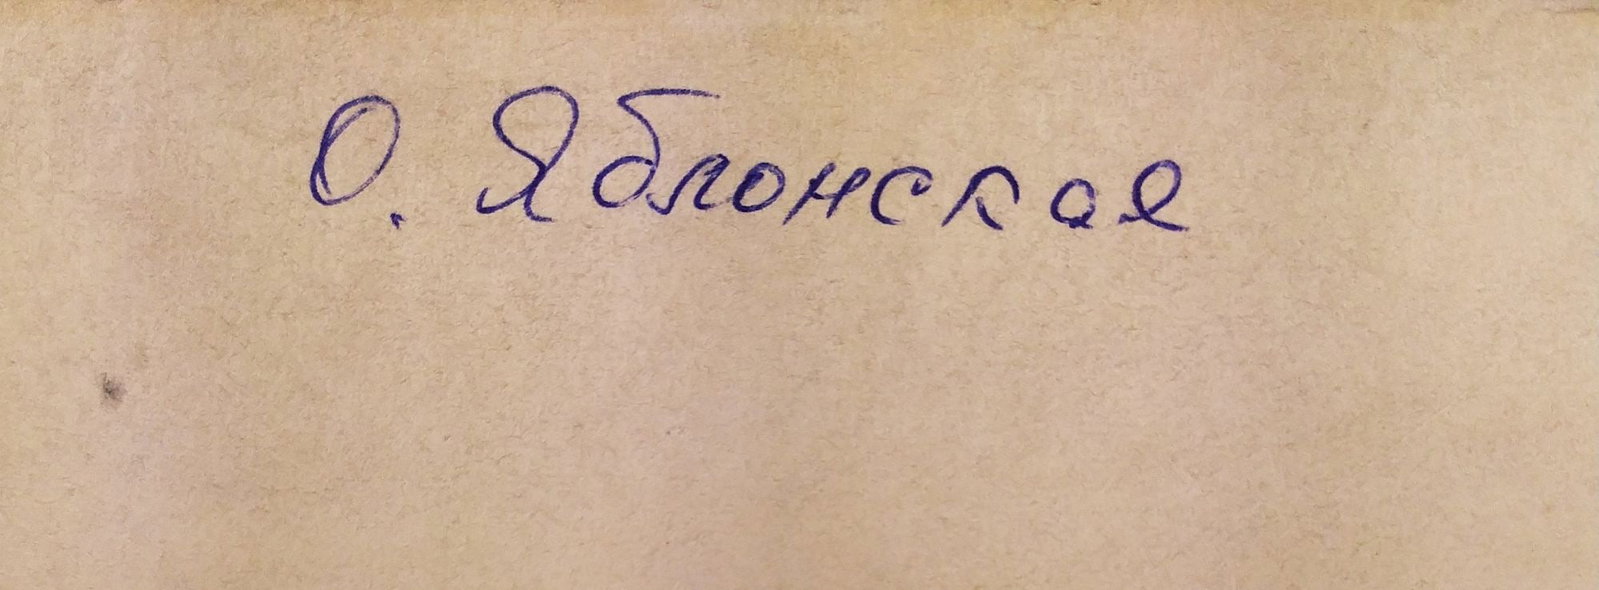 О. Яблонская